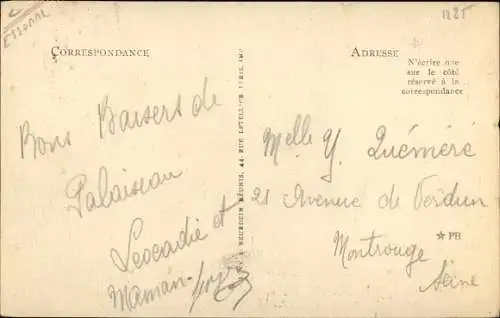 ESSONNE
1225
CORRESPONDANCE
Bons Baisers de
Palaiseau
Leocadie et
Maman
ADRESSE
N'écrire que
sur le côté
réservé à la
correspondance
Melle Y. Quéméré
21 Avenue de Verdun
Montrouge
Seine
★ PB
NEURDEIN RÉUNIS, 44, RUE LETELLIER PARIS